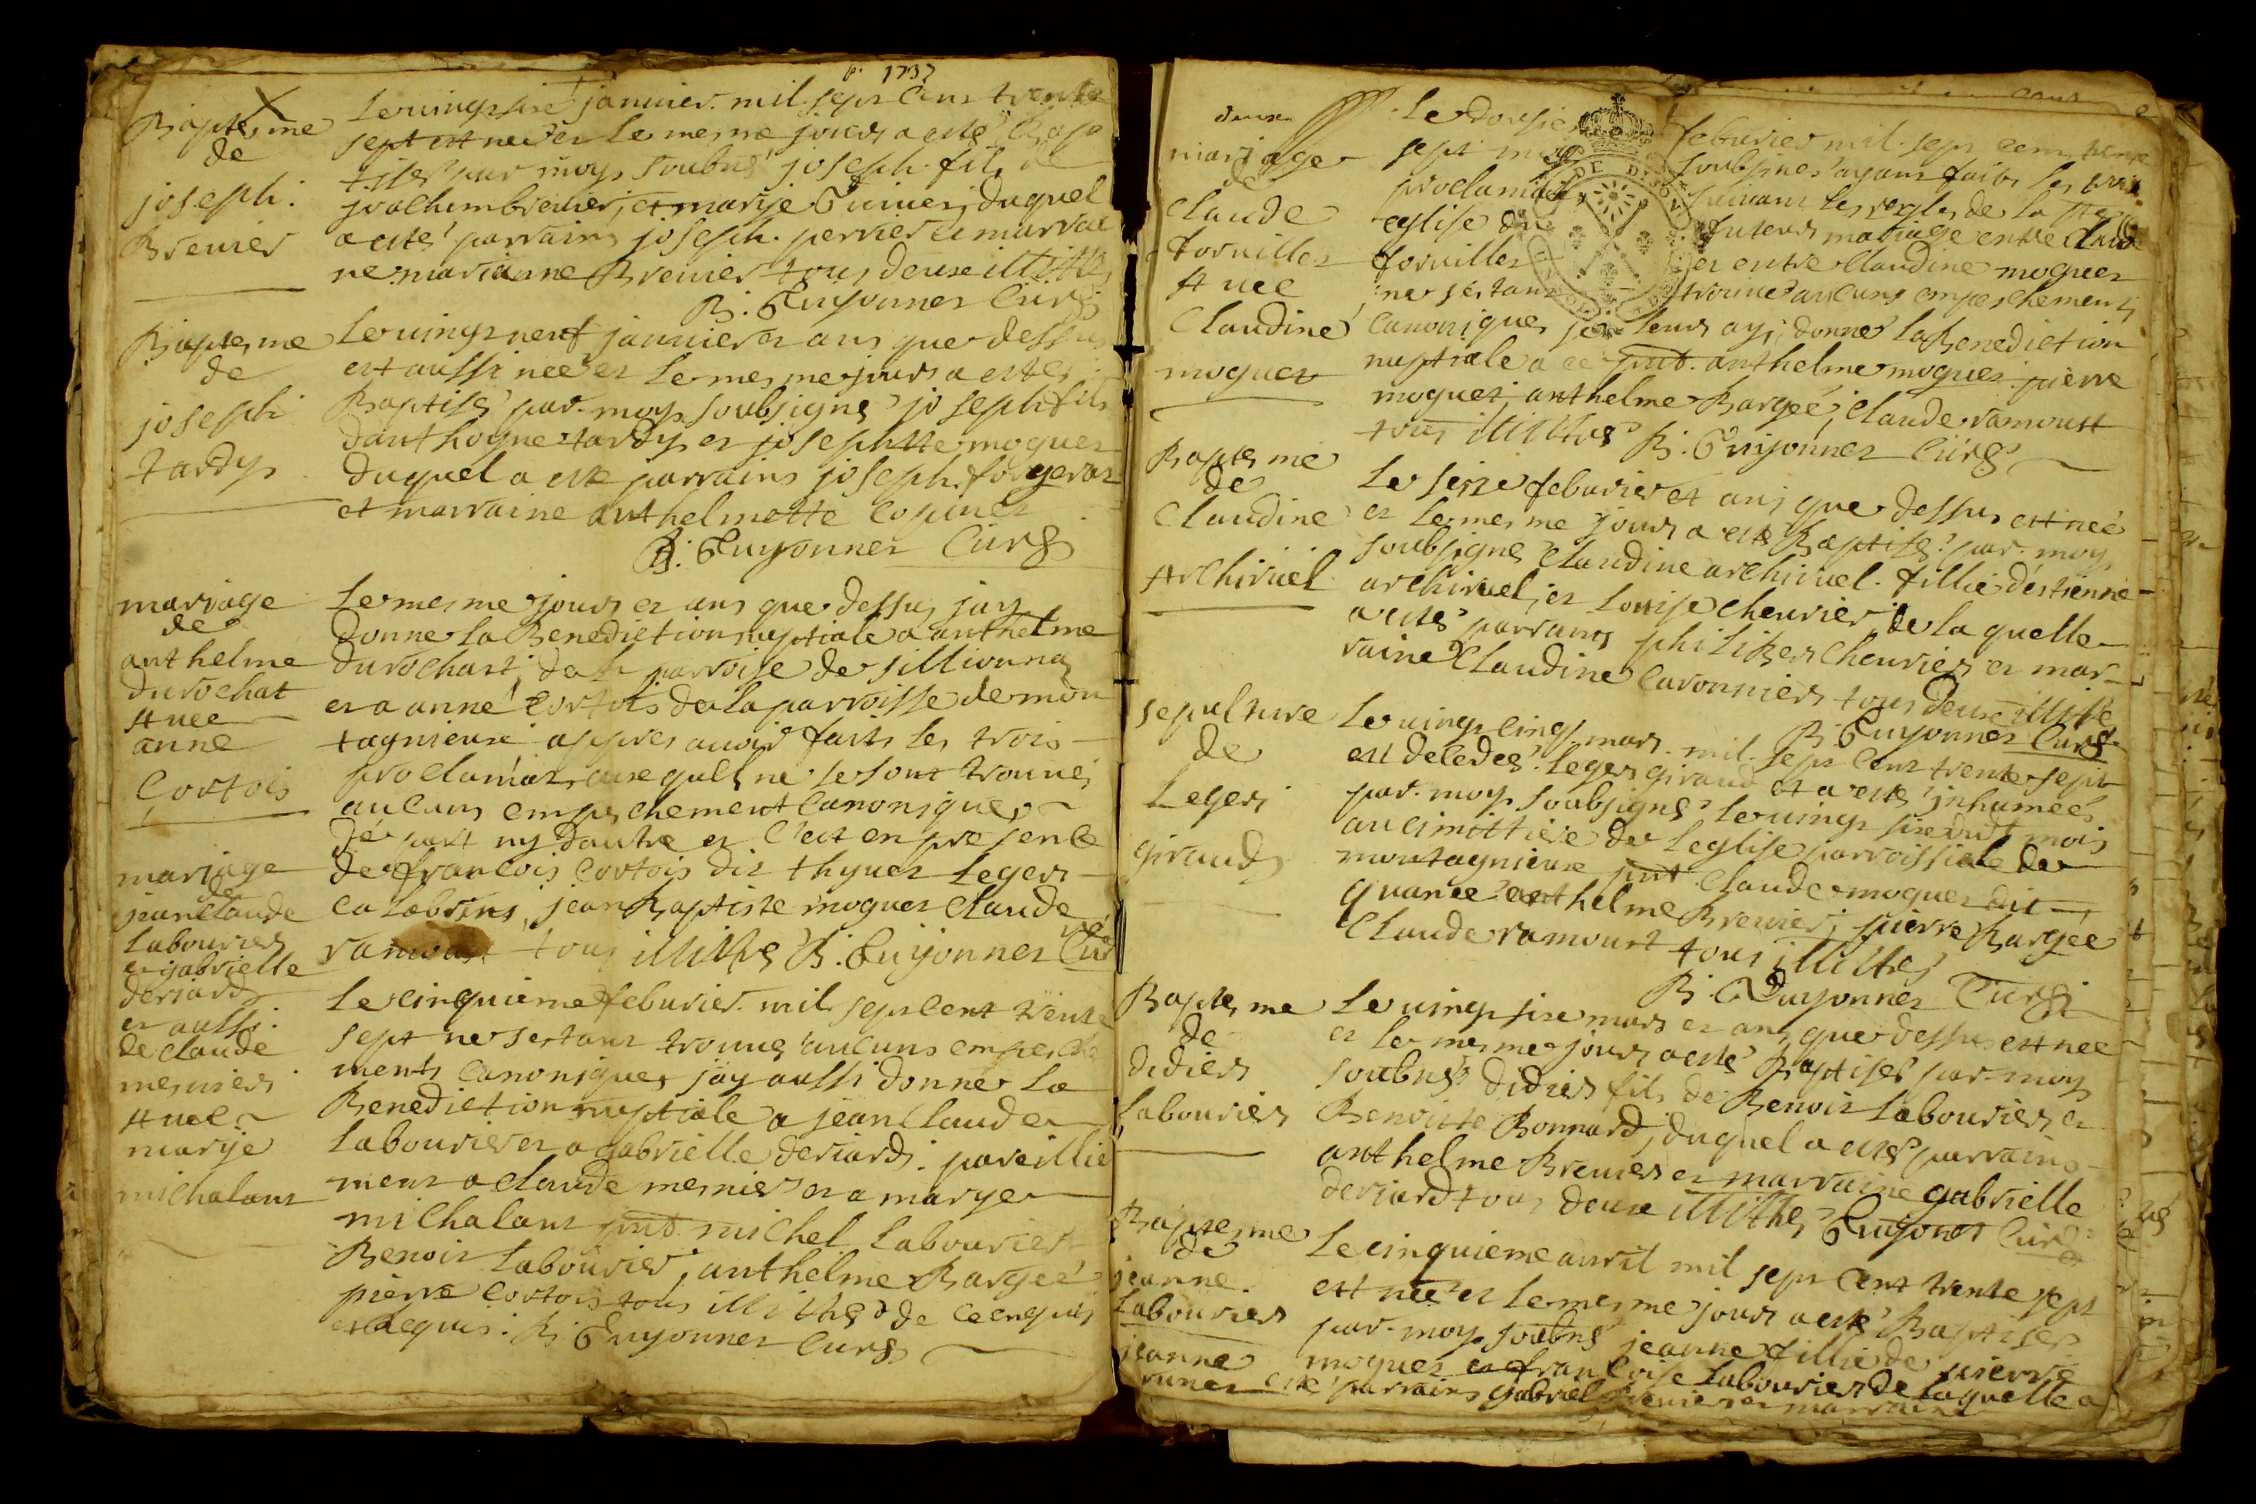 1737
Baptesme
de
joseph.
Brenier
Le vingt sixe janvier mil sept cens trente
sept est ne et le mesme jour a esté Bap
tisé par moy soubné joseph fils de
joachim brenier, et marije Guinet, duquel
a esté parrains joseph. perrier et marrai
ne marianne Brenier tous deux illitérés
B. Guyonnet Curé
Baptesme
de
joseph
tardys
Le vingt neuf janvier et ans que dessus
est aussi neé et le mesme jours a esté
Baptisé par moy soubsigné joseph fils
d'anthoyne tardys et josephtte moguet
duquel a esté parrains joseph. forgerat
et marraine anthelmette Copinet
B. Guyonnet Curé
mariage
de
anthelme
durochat
Avec
anne
Cortois
Le mesme jours et ans que dessus jay
donne La Benediction nuptiale a anthelme
durochast, de la parroise de sillionnas
et a anne Cortois de la parroisse de mon
tagnieux appres avoir faits les trois
proclamãons auxqulls ne se sont trouvés
auCuns empeschement Canoniques
de part ny dautre et C'est en presence
de franCois Cortois dit thynet Leger
Calabrins, jean Baptiste moguet Claude
ramoust tous illitérés B. Guyonnet Curé
mariage
de
jean Claude
Labourier
et gabrielle
deriard
et aussi
de Claude
mesnier
Avec
marije
michalant
Le cinquieme feburier mil sept Cent trente
sept ne sestant trouvé auCuns empesche
ments Canoniques jay aussi donné La
Benediction nuptiale a jean Claude
Labourier et a gabrielle deriard. pareillie
ment a claude mesnier et a marye
michalant pnt michel Labourier
Benoit Labourier, anthelme Bargeé
pierre Cortois tous illitérés de Ce enquis
et requis. B. Guyonnet Curé
mariage
de
Claude
forvillet
Avec
Claudine
moguet
Le dousie feburier mil sept cent trente
sept soubsiné ayant faits les trois
proclama suivant les regles de la Ste
eglise du futeur mariage entre Claude
forvillet et entre Claudine moguet
ne sestant trouvé auCuns empeschements
Canoniques je Leurs ay, donné la Benediction
nuptiale a ce pnt. anthelme moguet pierre
moguet, anthelme Bargeé, Claude ramoust
tous illitérés B. Guyonnet Curé
Baptesme
de
Claudine
Archiruel
Le seize feburier et ans que dessus est neé
et Le mesme jours a esté Baptisé par moy
soubsigné Claudine archiruel fillie d'estienne
archiruel, et Louise Chevrier de la quelle
a esté parrains philibert Chevrier et mar
raine Claudine Caronnier tous deux illitérés
B. Guyonnet Curé
sepulture
de
Leger
giraud
Le vingt cinq mars mil sept Cent trente sept
est decedes Leger giraud et a esté inhumeé
par moy soubsigné Le vingt sixe dudt mois
au cimittiere de Leglise parroissiale de
montagnieux pnt Claude moguet dit
quance anthelme Brenier, pierre Bargee
Claude ramoust tous illitérés
B. Guyonnet Curé
Baptesme
de
didier
Labourier
Le vingt sixe mars et ans que dessus est neé
et Le mesme jours a esté Baptisé par moy
soubné didier fils de Benoit Labourier et
Benoitte Bonnard, duquel a esté parrains
anthelme Brenier et marraine gabrielle
deriard tous deux illitérés Guyonet Curé
Baptesme
de
jeanne
Labourier
jeanne
Le cinquieme avril mil sept Cent trente sept
est neé et Le mesme jours a esté Baptisés
par moy soubné jeanne fillie de pierre
moguet et franCoise Labourier de laquelle a
esté parrains gabriel Brenier et marraine